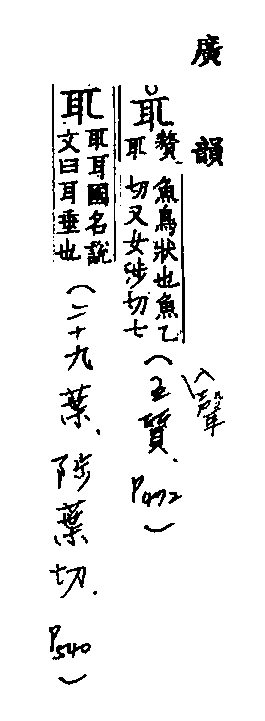 廣韻
耴聱耴魚鳥狀也魚乙切又女涉切七(五質、P472)
入聲
耴耴耳國名說文曰耳垂也(二十九葉、陟葉切、P540)